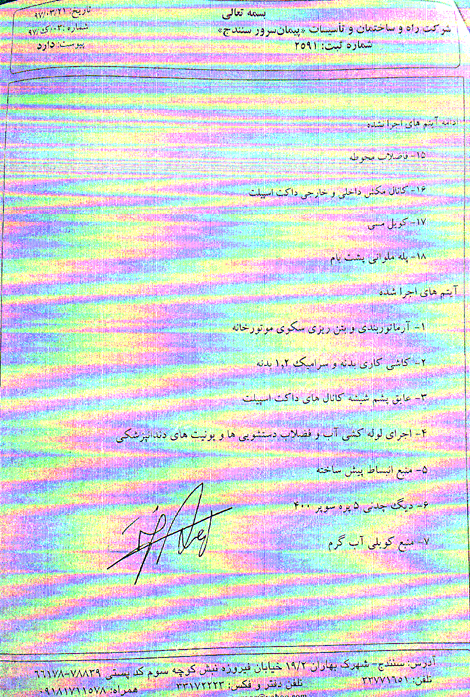 بسمه تعالی
شرکت راه و ساختمان و تأسیسات «پیمان سرور سنندج»
شماره ثبت: ۲۵۹۱
تاریخ: ۹۷/۰۳/۲۱
شماره: ۰۳/ک/۹۷
پیوست: دارد
ادامه آیتم های اجرا شده
۱۵- فاضلاب محوطه
۱۶- کانال مکش داخلی و خارجی داکت اسپیلت
۱۷- کویل مسی
۱۸- پله ملوانی پشت بام
آیتم های اجرا شده
۱- آرماتوربندی و بتن ریزی سکوی موتورخانه
۲- کاشی کاری بدنه و سرامیک ۱,۲ بدنه
۳- عایق پشم شیشه کانال های داکت اسپیلت
۴- اجرای لوله کشی آب و فضلاب دستشویی ها و یونیت های دندانپزشکی
۵- منبع انبساط پیش ساخته
۶- دیگ چدنی ۵ پره سوپر ۴۰۰
۷- منبع کویلی آب گرم
آدرس: سنندج- شهرک بهاران ۱۹/۲ خیابان فیروزه نبش کوچه سوم کد پستی ۷۸۸۳۹-۶۶۱۷۸
تلفن: ۳۳۷۷۱۹۵۱ تلفن دفتر و فکس: ۳۳۱۷۲۲۲۳ همراه: ۰۹۱۸۱۷۱۱۵۷۸